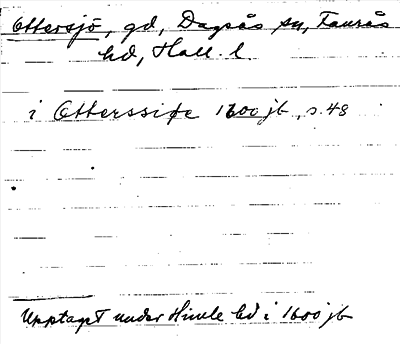 Ottersjö, gd, Dagsås sn, Faurås
hd, Hall. l.
i Otterssiøe 1600 jb, s. 48
Upptaget under Himle hd i 1600 jb